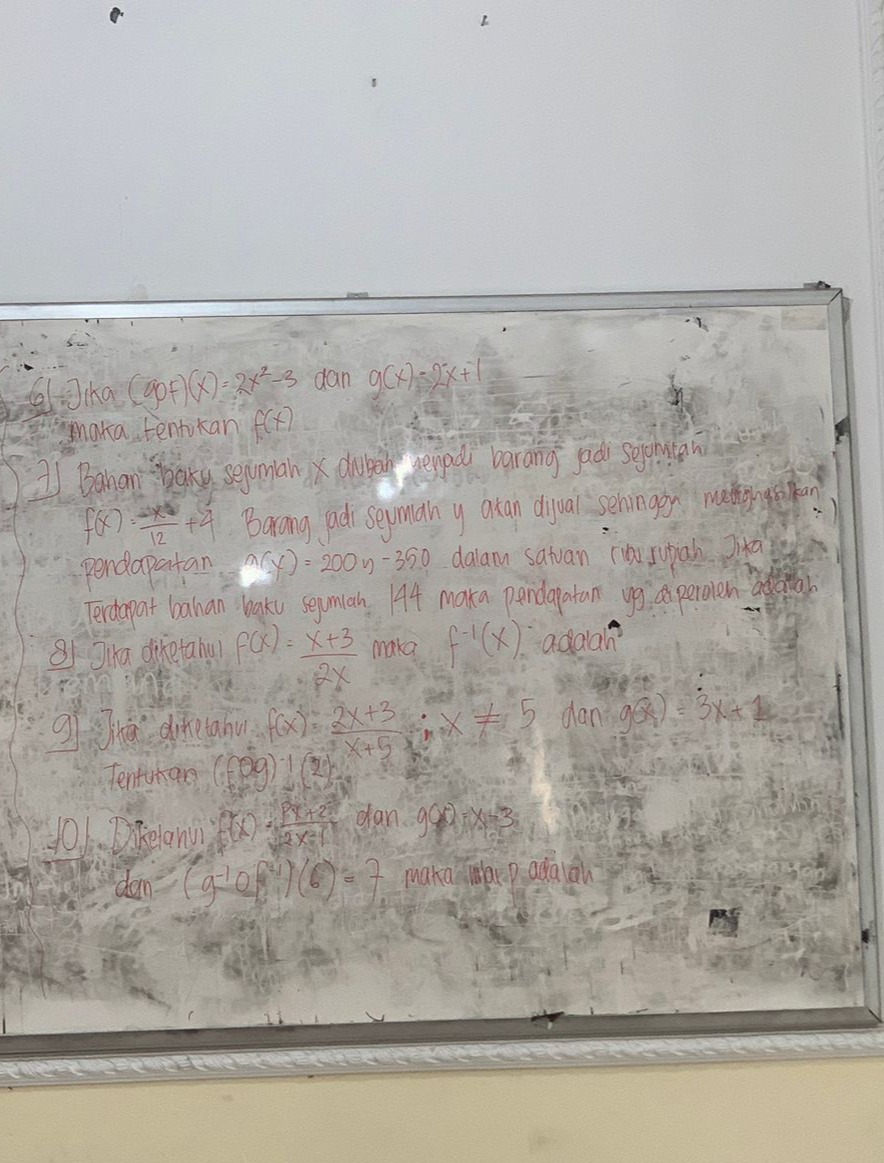 6] Jika (gof)(x) = 2x² - 3 dan g(x) = 2x + 1
maka tentukan f(x)
7] Bahan baku sejumlah x diubah menjadi barang jadi sejumlah
f(x) = x/12 + 4 Barang jadi sejumlah y akan dijual sehingga menghasilkan
pendapatan g(y) = 200y - 350 dalam satuan ribu rupiah Jika
Terdapat bahan baku sejumlah 144 maka pendapatan yg diperoleh adalah
8] Jika diketahui f(x) = (x+3)/(2x) maka f⁻¹(x) adalah
9] Jika diketahui f(x) = (2x+3)/(x+5) ; x ≠ 5 dan g(x) = 3x + 1
Tentukan (fog)⁻¹(2)
10] Diketahui f(x) = (Px+2)/(2x-1) dan g(x) = x - 3
dan (g⁻¹of⁻¹)(6) = 7 maka nilai p adalah